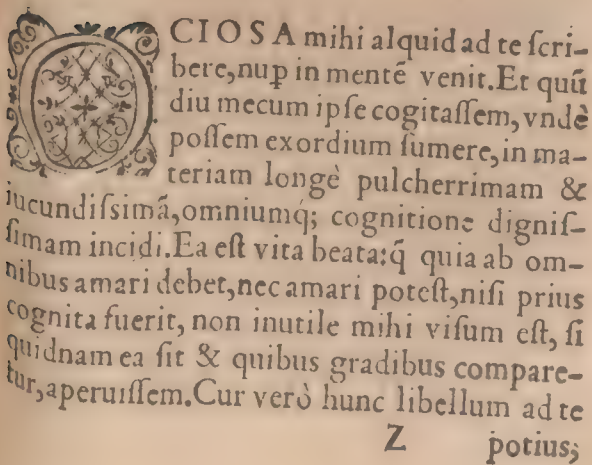 OCIOSA mihi alquid ad te ſcri-
bere, nup in mentē venit. Et quū
diu mecum ipſe cogitaſſem, vndè
poſſem exordium ſumere, in ma-
teriam longè pulcherrimam &
iucundiſsimā, omniumq; cognitione digniſ-
ſimam incidi. Ea eſt vita beata: q̄ quia ab om-
nibus amari debet, nec amari poteſt, niſi prius
cognita fuerit, non inutile mihi viſum eſt, ſi
quidnam ea ſit & quibus gradibus compare-
tur, aperuiſſem. Cur verò hunc libellum ad te
Z potius,